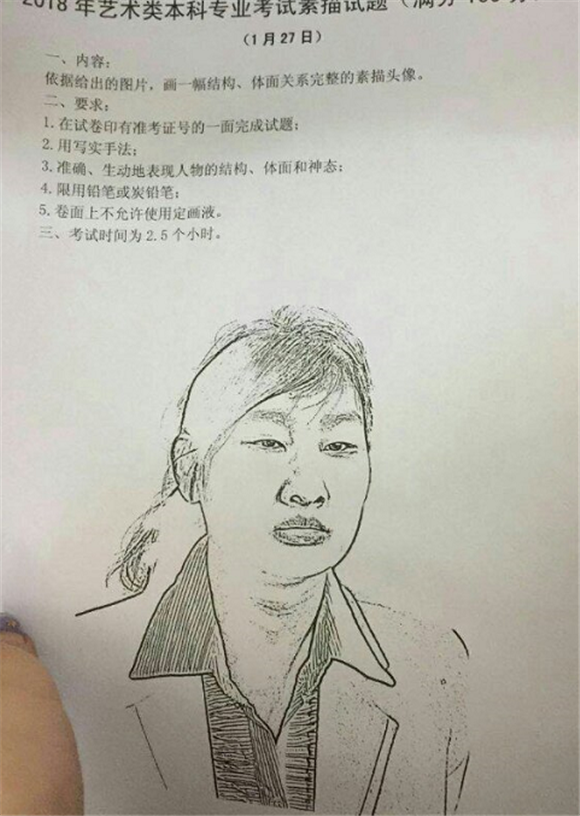 2018 年艺术类本科专业考试素描试题（满分
（1 月 27 日）
一、内容：
依据给出的图片，画一幅结构、体面关系完整的素描头像。
二、要求：
1. 在试卷印有准考证号的一面完成试题；
2. 用写实手法；
3. 准确、生动地表现人物的结构、体面和神态；
4. 限用铅笔或炭铅笔；
5. 卷面上不允许使用定画液。
三、考试时间为 2.5 个小时。